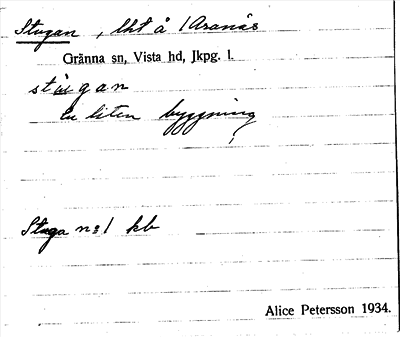 Stugan, lht å 1 Aranäs
Gränna sn, Vista hd, Jkpg. l.
stugan
En liten byggning
Stuga n:1 kb
Alice Petersson 1934.